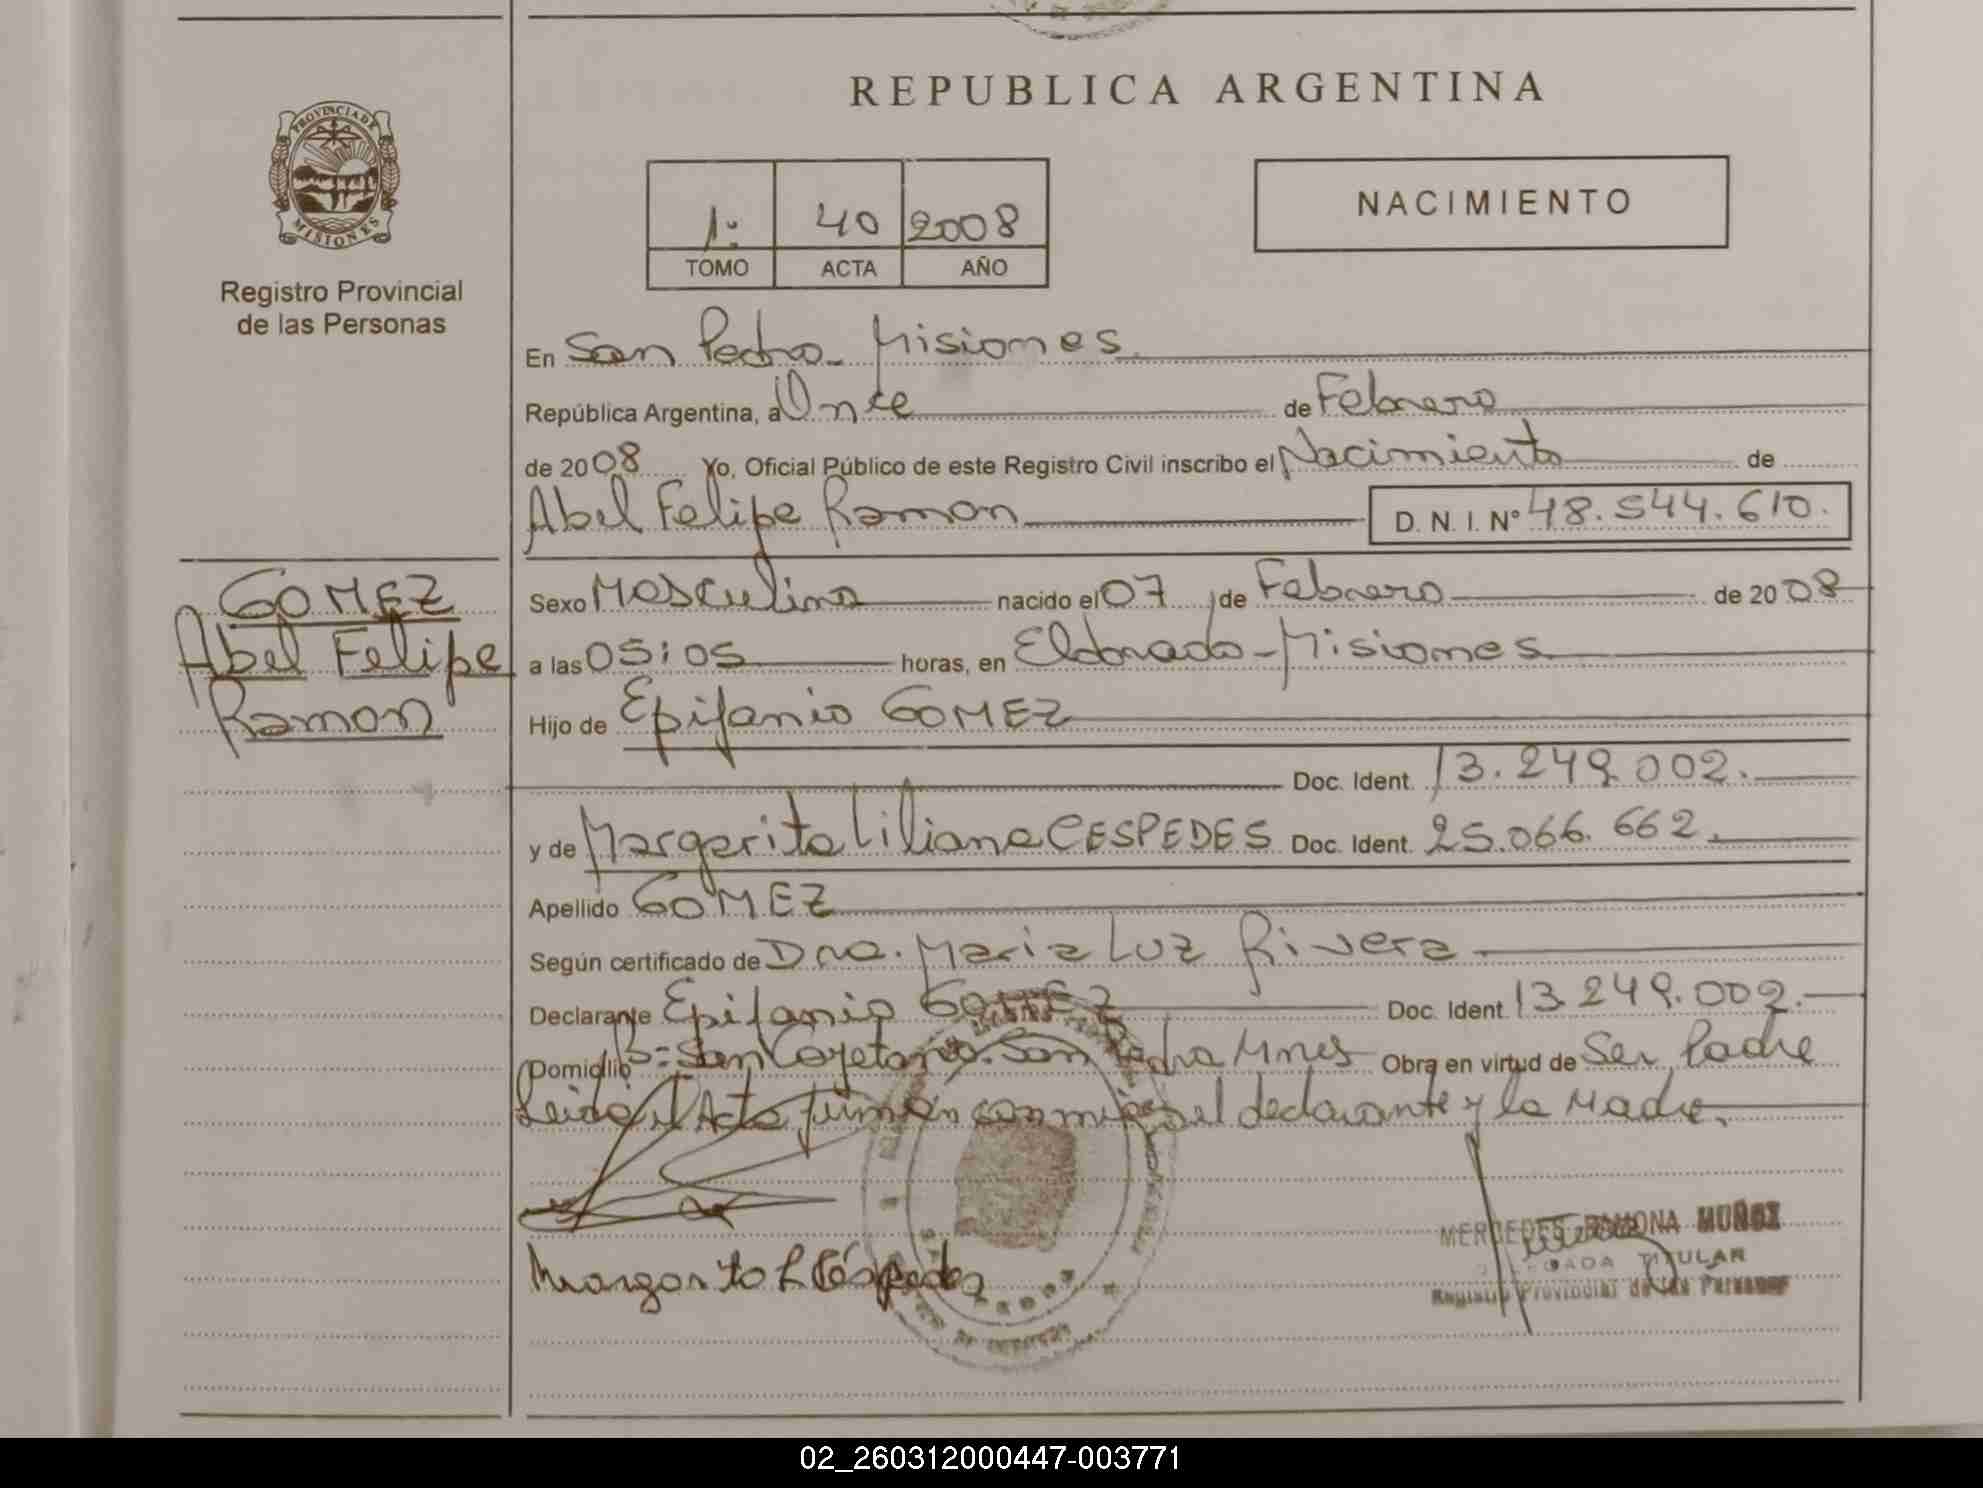 REPUBLICA ARGENTINA
PROVINCIA DE
MISIONES
Registro Provincial
de las Personas
1º 40 2008
TOMO ACTA AÑO
NACIMIENTO
En San Pedro - Misiones
República Argentina, a Once de Febrero
de 2008 Yo, Oficial Público de este Registro Civil inscribo el Nacimiento de
Abel Felipe Ramon D. N. I. Nº 48.544.610.
GOMEZ
Abel Felipe
Ramon
Sexo Masculino nacido el 07 de Febrero de 2008
a las 05:05 horas, en Eldorado - Misiones
Hijo de Epifanio GOMEZ
Doc. Ident. 13.249.002.
y de Margarita Liliana CESPEDES Doc. Ident. 25.066.662.
Apellido GOMEZ
Según certificado de Dra. Maria Luz Rivera
Declarante Epifanio GOMEZ Doc. Ident. 13.249.002.
Domicilio Bº San Cayetano. San Pedro Mnes Obra en virtud de Ser Padre
Leida el Acta firman conmigo el declarante y la Madre.
Margarita L Céspedes
MERCEDES RAMONA MUÑOZ
TITULAR
Registro Provincial de las Personas
02_260312000447-003771